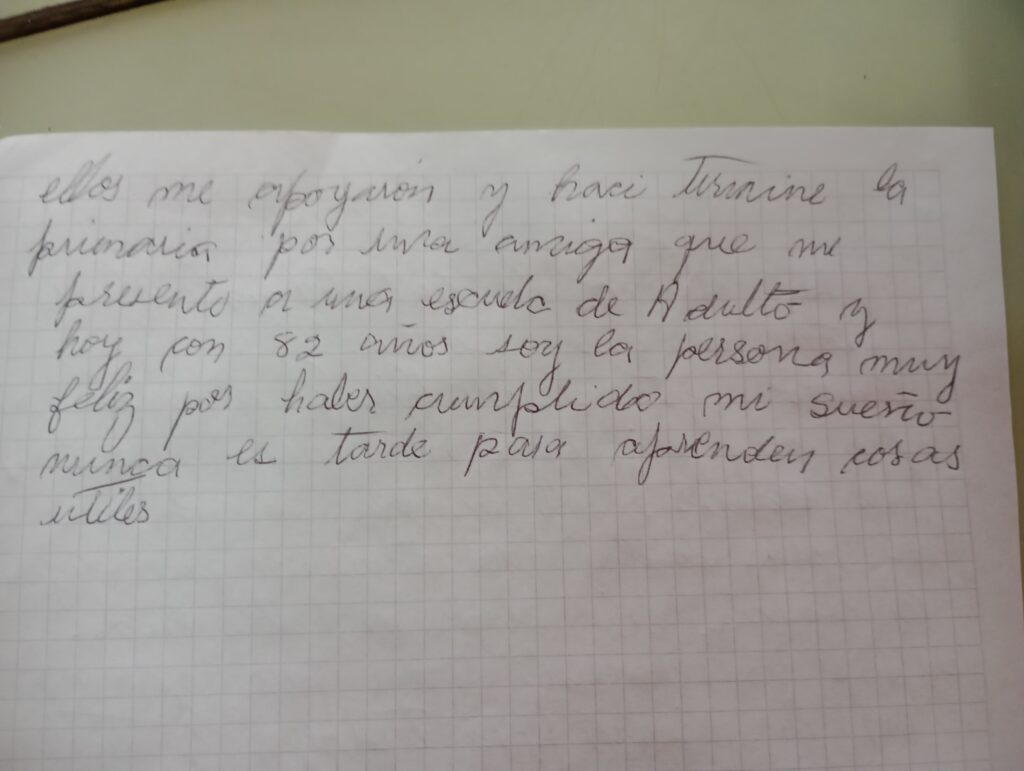 ellos me apoyaron y haci termine la
primaria por una amiga que me
presento a una escuela de Adulto y
hoy con 82 años soy la persona muy
feliz por haber cumplido mi sueño
nunca es tarde para aprender cosas
utiles